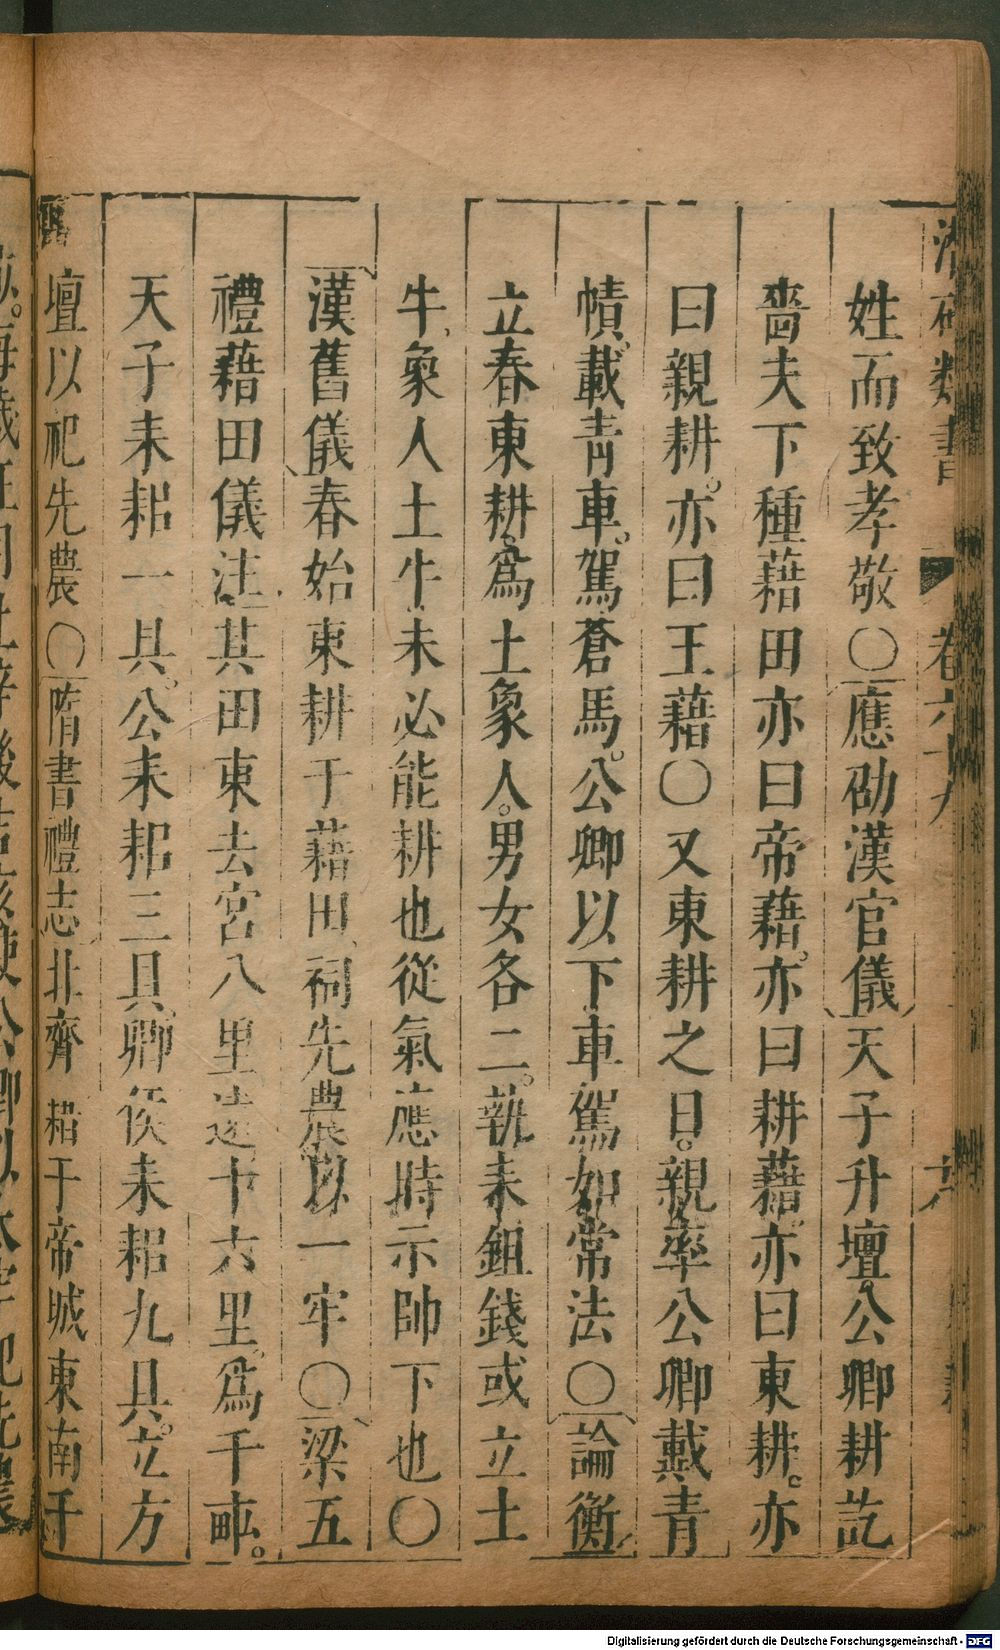 卷六十九
姓而致孝敬〇應劭漢官儀天子升壇公卿耕訖
嗇夫下種藉田亦曰帝藉亦曰耕藉亦曰東耕亦
曰親耕亦曰王藉〇又東耕之日親率公卿戴青
幘載青車駕蒼馬公卿以下車駕如常法〇論衡
立春東耕爲土象人男女各二執耒鉏錢或立土
牛象人土牛未必能耕也從氣應時示帥下也〇
漢舊儀春始東耕于藉田祠先農以一牢〇梁五
禮藉田儀注其田東去宮八里遠十六里爲千畝
天子耒耜一具公耒耜三具卿侯耒耜九具立方
壇以祀先農〇隋書禮志北齊耤于帝城東南千
Digitalisierung gefördert durch die Deutsche Forschungsgemeinschaft - DFG